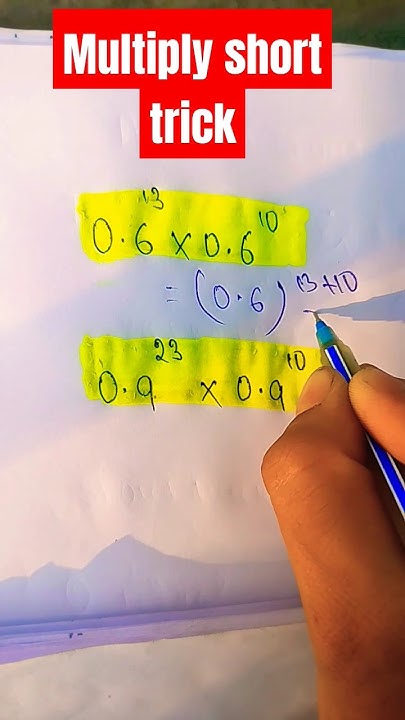 Multiply short
trick
0.6¹³ × 0.6¹⁰
= (0.6)¹³⁺¹⁰
0.9²³ × 0.9¹⁰